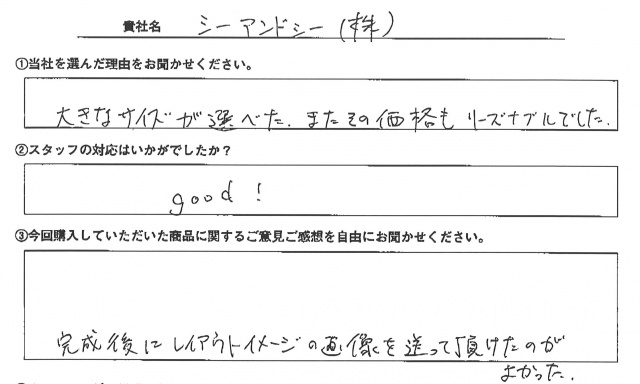 貴社名 シーアンドシー(株)
①当社を選んだ理由をお聞かせください。
大きなサイズが選べた。またその価格もリーズナブルでした。
②スタッフの対応はいかがでしたか?
good!
③今回購入していただいた商品に関するご意見ご感想を自由にお聞かせください。
完成後にレイアウトイメージの画像を送って頂けたのが
よかった。